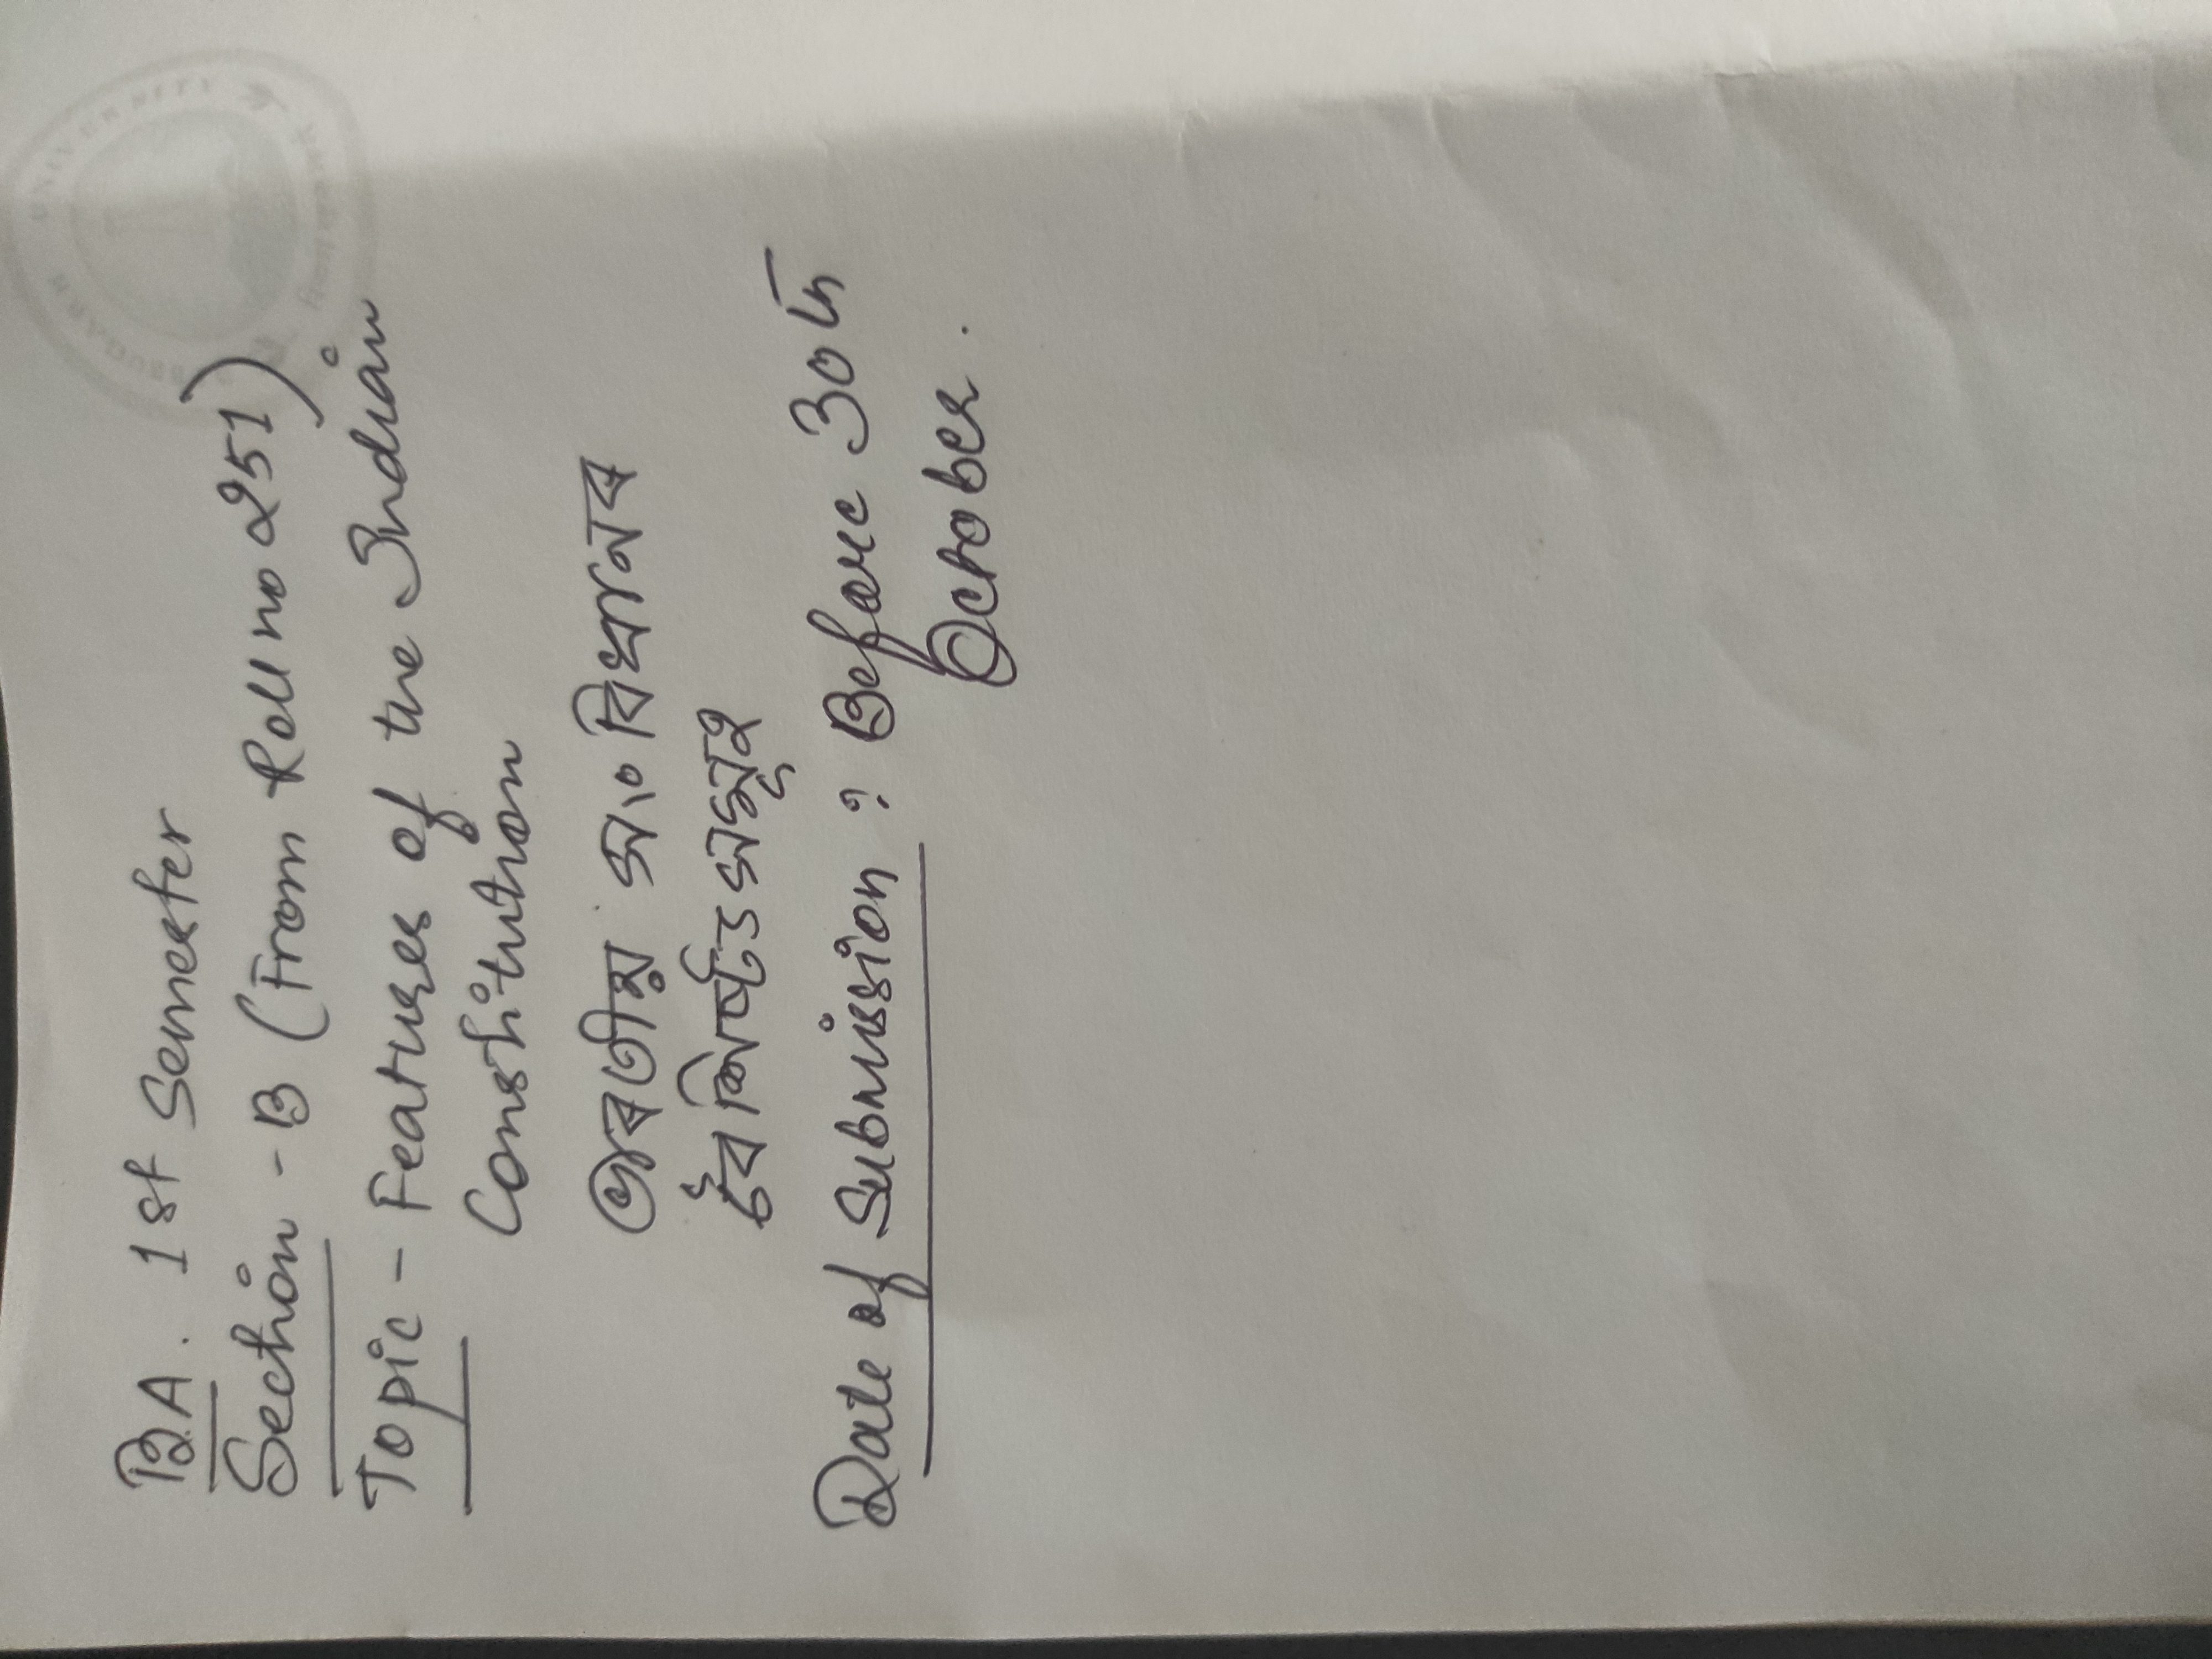 B.A. 1st Semester
Section - B (From Roll no 251)
Topic - Features of the Indian
Constitution
ভাৰতীয় সংবিধানৰ
বৈশিষ্ট্যসমূহ
Date of Submission : Before 30th
October.
UNIVERSITY